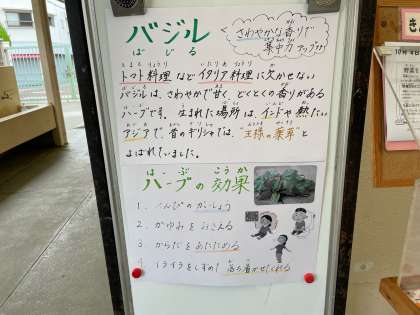 バジル
ばじる
さわやかな香りで
集中力アップ
トマト料理などイタリア料理に欠かせない
バジルは、さわやかで甘く、どくとくの香りがある
ハーブです。生まれた場所は、インドや熱たい
アジアで、昔のギリシャでは、"王様の薬草"と
よばれていました。
ハーブの効果
はーぶ こうか
1. べんぴのかいしょう
2. かゆみをおさえる
3. からだをあたためる
4. イライラをしずめて落ち着かせてくれる